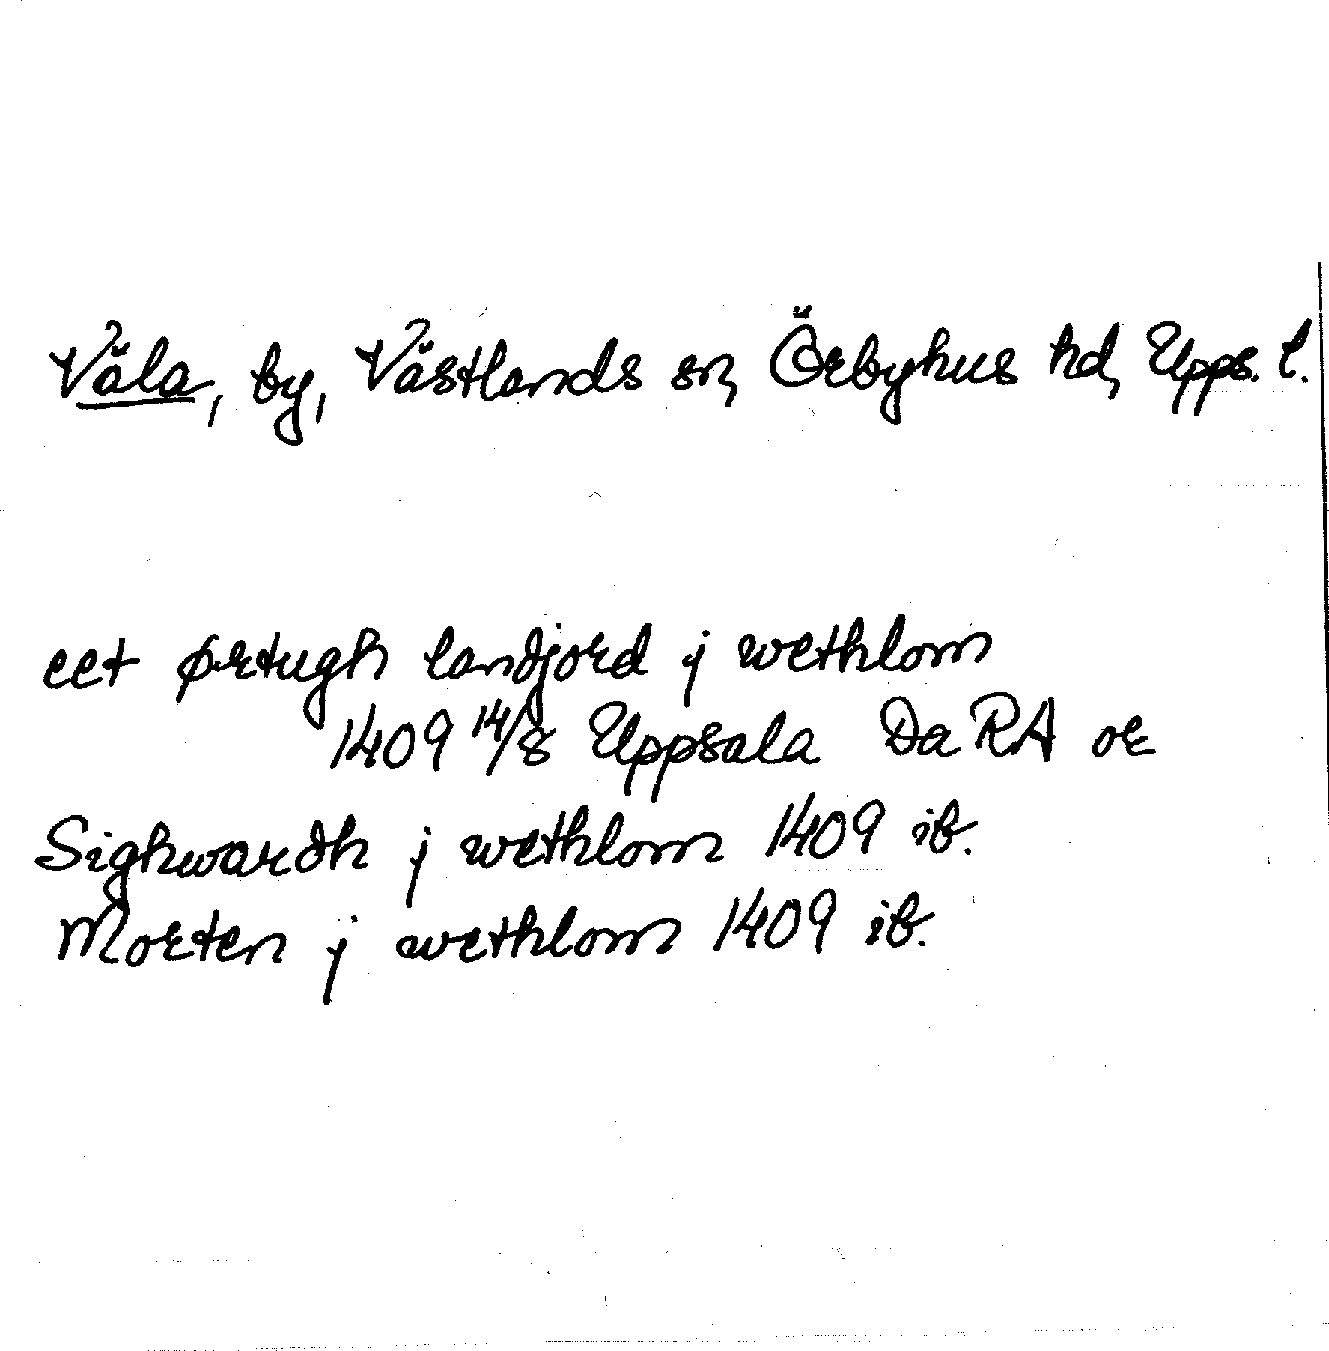 Väla, by, Västlands sn, Örbyhus hd, Upps. l.
eet ørtugh landjord j wethlom
1409 14/8 Uppsala DaRA or
Sighwardh j wethlom 1409 ib.
Morten j wethlom 1409 ib.